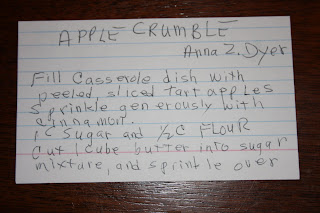 APPLE CRUMBLE
Anna Z. Dyer
Fill Casserole dish with
peeled, sliced tart apples
Sprinkle generously with
Cinnamon.
1 C Sugar and ½ C FLOUR
Cut 1 cube butter into sugar
mixture, and sprinkle over